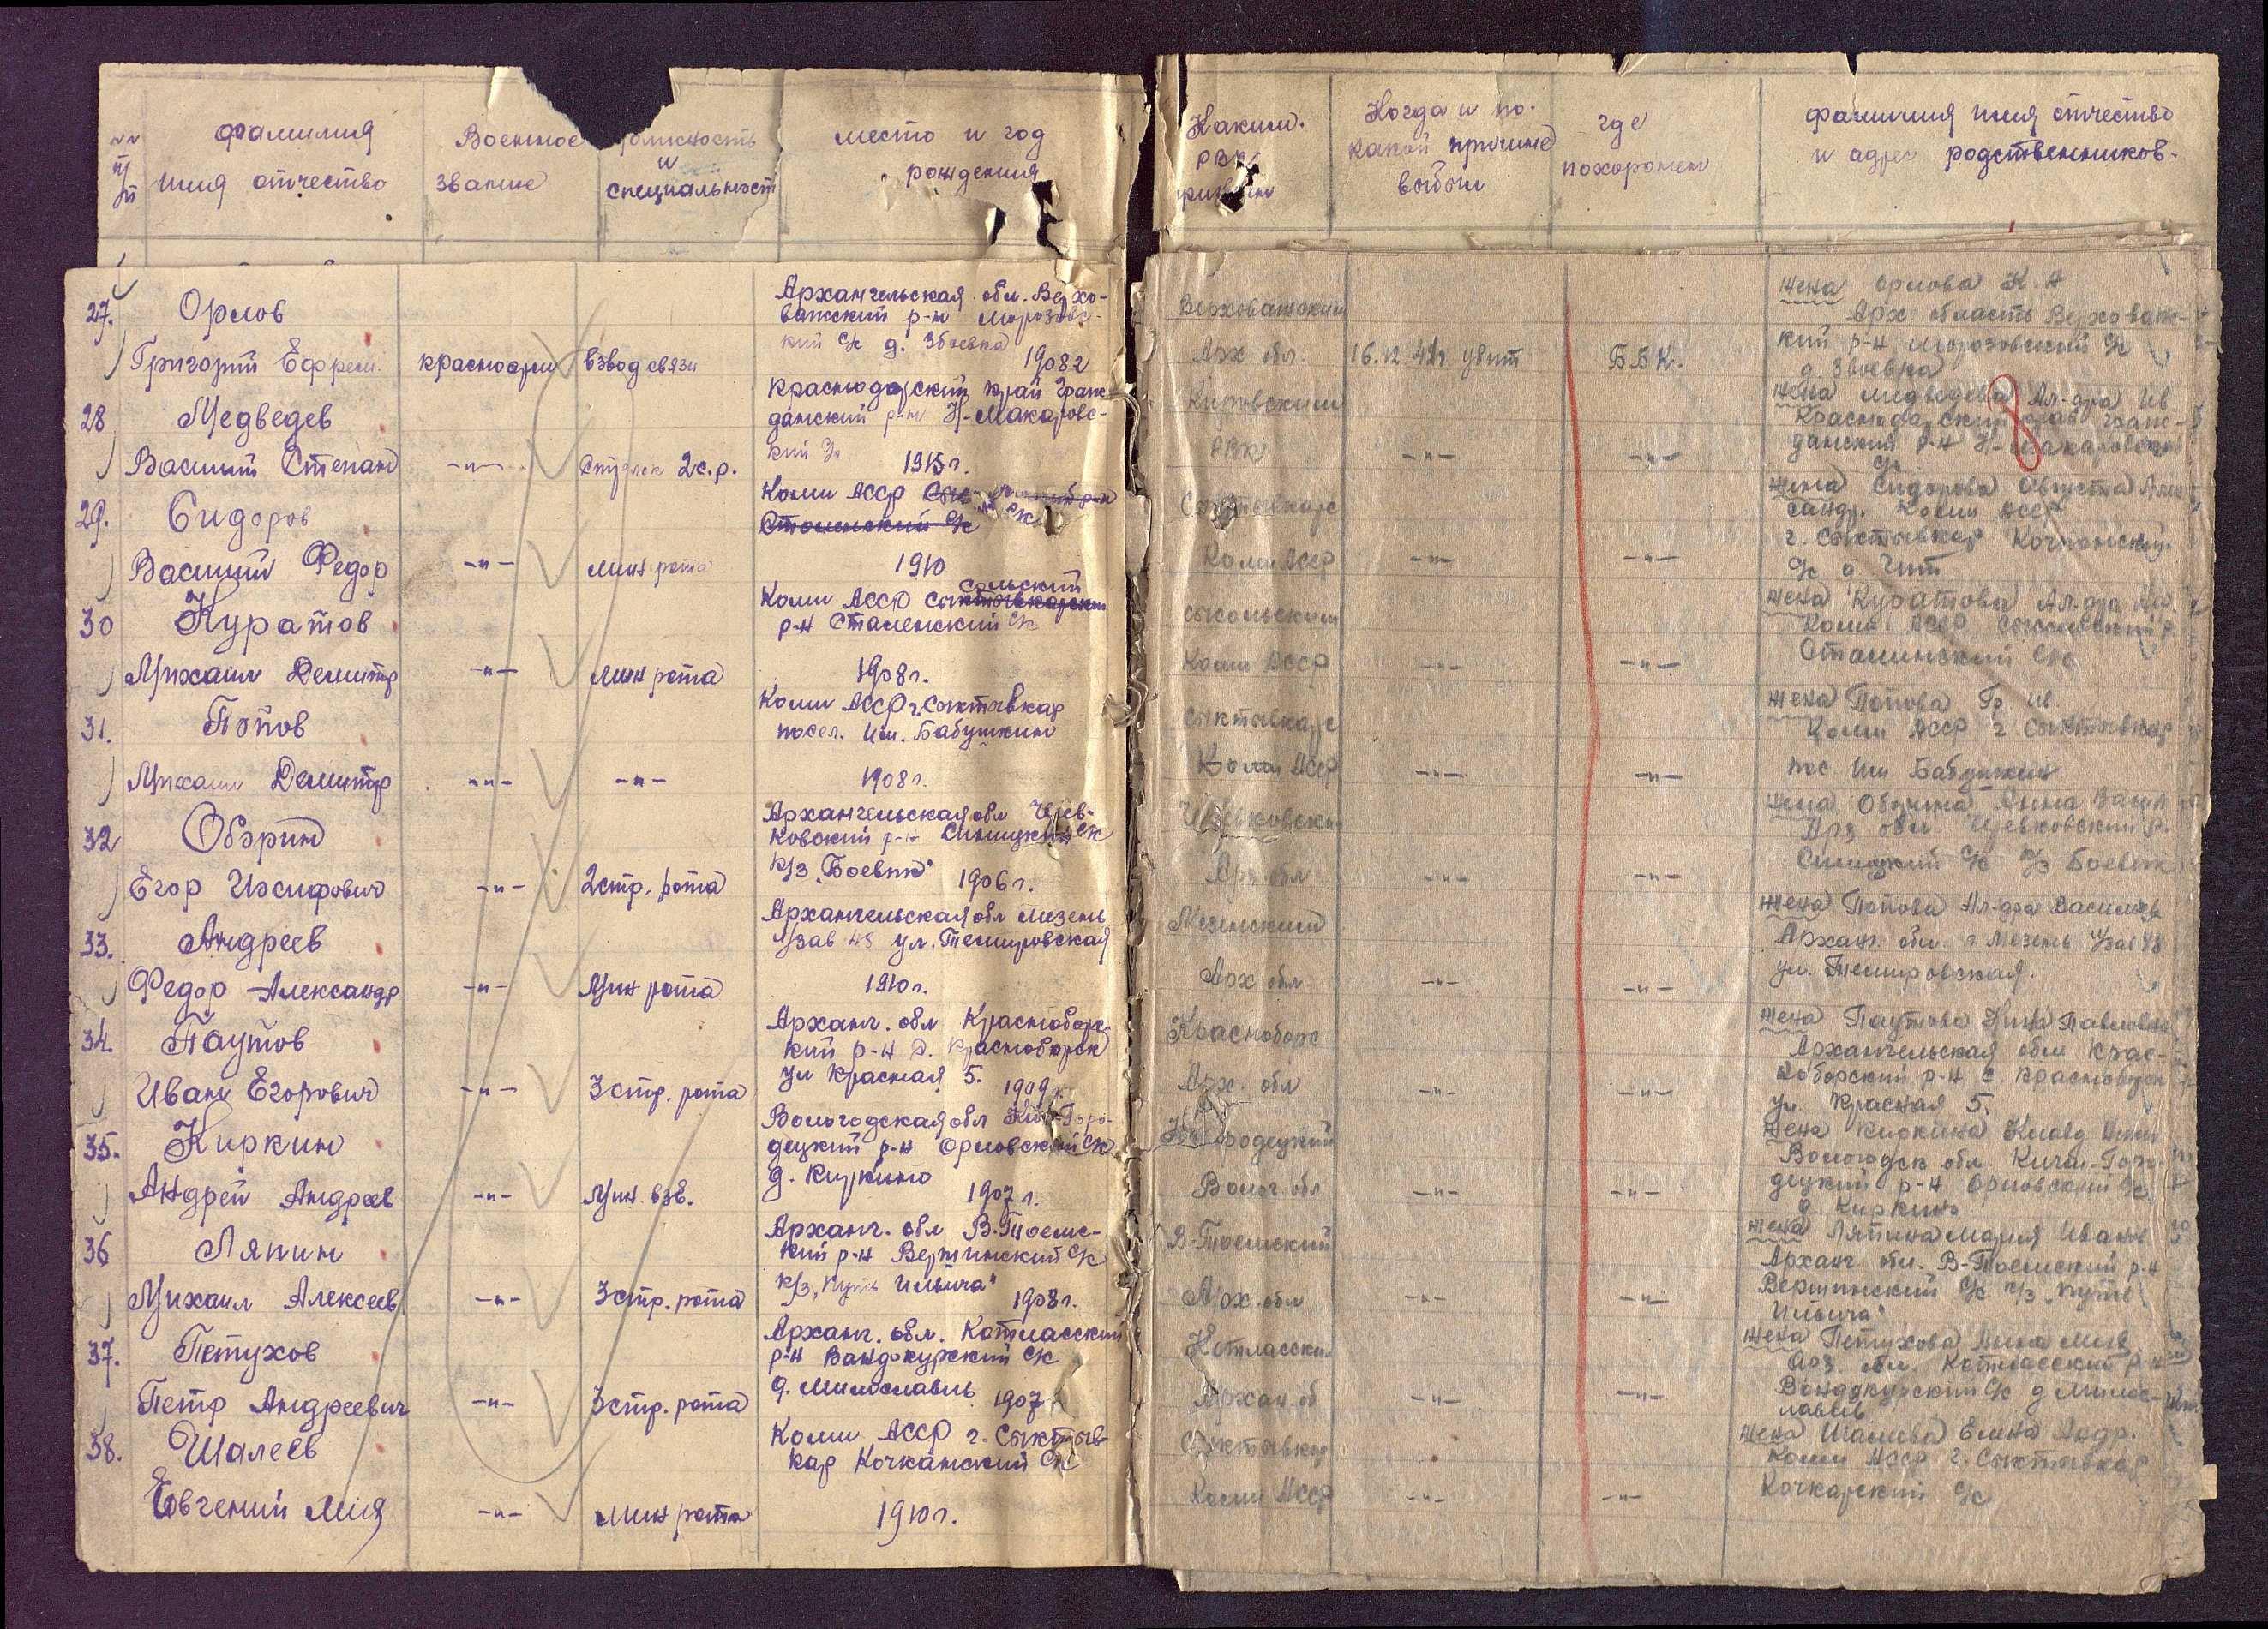 фамилия
имя отчество
Военное
звание
и
специальност
место и год
рождения
Каким
Когда и по
какой причине
выбыл
где
похоронен
фамилия имя отчество
и адрес родственников.
27. Орлов
Григорий Ефрем
красноарм
взвод связи
Архангельская обл. Верхо-
важский р-н Морозовс-
кий с/с д. Звоевка
1908г
Верховажским
Арх обл.
16.12.41г. убит
Б.Б.К.
жена Орлова К. А
Арх область Верховаж-
кий р-н Морозовский с/с
д. Звоевка
28 Медведев
Василий Степан
-"-
2 с.р.
Краснодарский край Граж-
данский р-н Н-Макаровс-
кий с/с
1915г.
РВК
-"-
-"-
жена Медведева Ал-дра Ив
Краснодарский край Граж-
данский р-н Н-Макаровский
с/с
29. Сидоров
Василий Федор
-"-
мин. рота
Коми АССР
1910
Сыктывкарс
Коми АССР
-"-
-"-
жена Сидорова Августа Алек
сандр. Коми АССР
г. Сыктывкар Кочпонский
с/с д. Чит
30 Куратов
Михаил Демитр
-"-
мин рота
Коми АССР
сольский
р-н Сталенский с/с
1908г.
Сысольским
Коми АССР
-"-
-"-
жена Куратова Ал-дра
Коми АССР Сысольский р
Сталинский с/с
31. Попов
Михаил Демитр
-"-
-"-
Коми АССР г. Сыктывкар
посел. им. Бабушкин
1908г.
Сыктывкарс
Коми АССР
-"-
-"-
жена Попова Гр. Ив
Коми АССР г Сыктывкар
пос им Бабушкин
32 Обрин
Егор Иосифович
-"-
2 стр. рота
Архангельская обл Черев-
ковский р-н Синицкий с/с
к/з "Боевик" 1906г.
Арх обл
-"-
-"-
жена Анна Васил
Арх обл. Черевковский р.
Синицкий с/с к/з Боевик
33. Андреев
Федор Александр
-"-
Мин рота
Архангельская обл Мезень
ул. Темировская
1910г.
Мезенским
Арх обл
-"-
-"-
жена Попова Ал-дра Васильев
Архан. обл. г Мезень
ул. Темировская.
34. Паутов
Иван Егорович
-"-
3 стр. рота
Арханг. обл Красноборс-
кий р-н с. Красноборск
ул Красная 5.
1909г.
Красноборс
Арх. обл
-"-
-"-
жена Паутова Нина Павловна
Архангельская обл Крас-
ноборский р-н с. Красноборск
ул Красная 5.
35. Киркин
Андрей Андреев
-"-
Мин. взв.
Вологодская обл Кич-Горо-
децкий р-н Орловский с/с
д. Киркино
1907г.
Волог обл
-"-
-"-
жена Киркина
Вологодск обл. Кичм-Горо-
децкий р-н Орловский с/с
д Киркино
36 Ляпин
Михаил Алексеев
-"-
3 стр. рота
Арханг. обл В.Тоемс-
кий р-н Вершинский с/с
к/з "Путь Ильича"
1908г.
В-Тоемский
Арх. обл
-"-
-"-
жена Ляпина Мария Иванов
Арханг обл. В-Тоемский р-н
Вершинский с/с к/з "Путь
Ильича"
37. Петухов
Петр Андреевич
-"-
3 стр. рота
Арханг. обл. Котласский
р-н Вандокурский с/с
д. Милославль
1907
Котласским
Архан. об
-"-
-"-
жена Петухова
Арх. обл. Котласский р-н
Вандокурский с/с д Милос-
лавль
38. Шалеев
Евгений
-"-
мин рота
Коми АССР г. Сыктыв-
кар Кочканский с/с
1910г.
Сыктывкар
Коми АССР
-"-
-"-
жена Шалева Елена Андр.
Коми АССР г. Сыктывкар
Кочкарский с/с